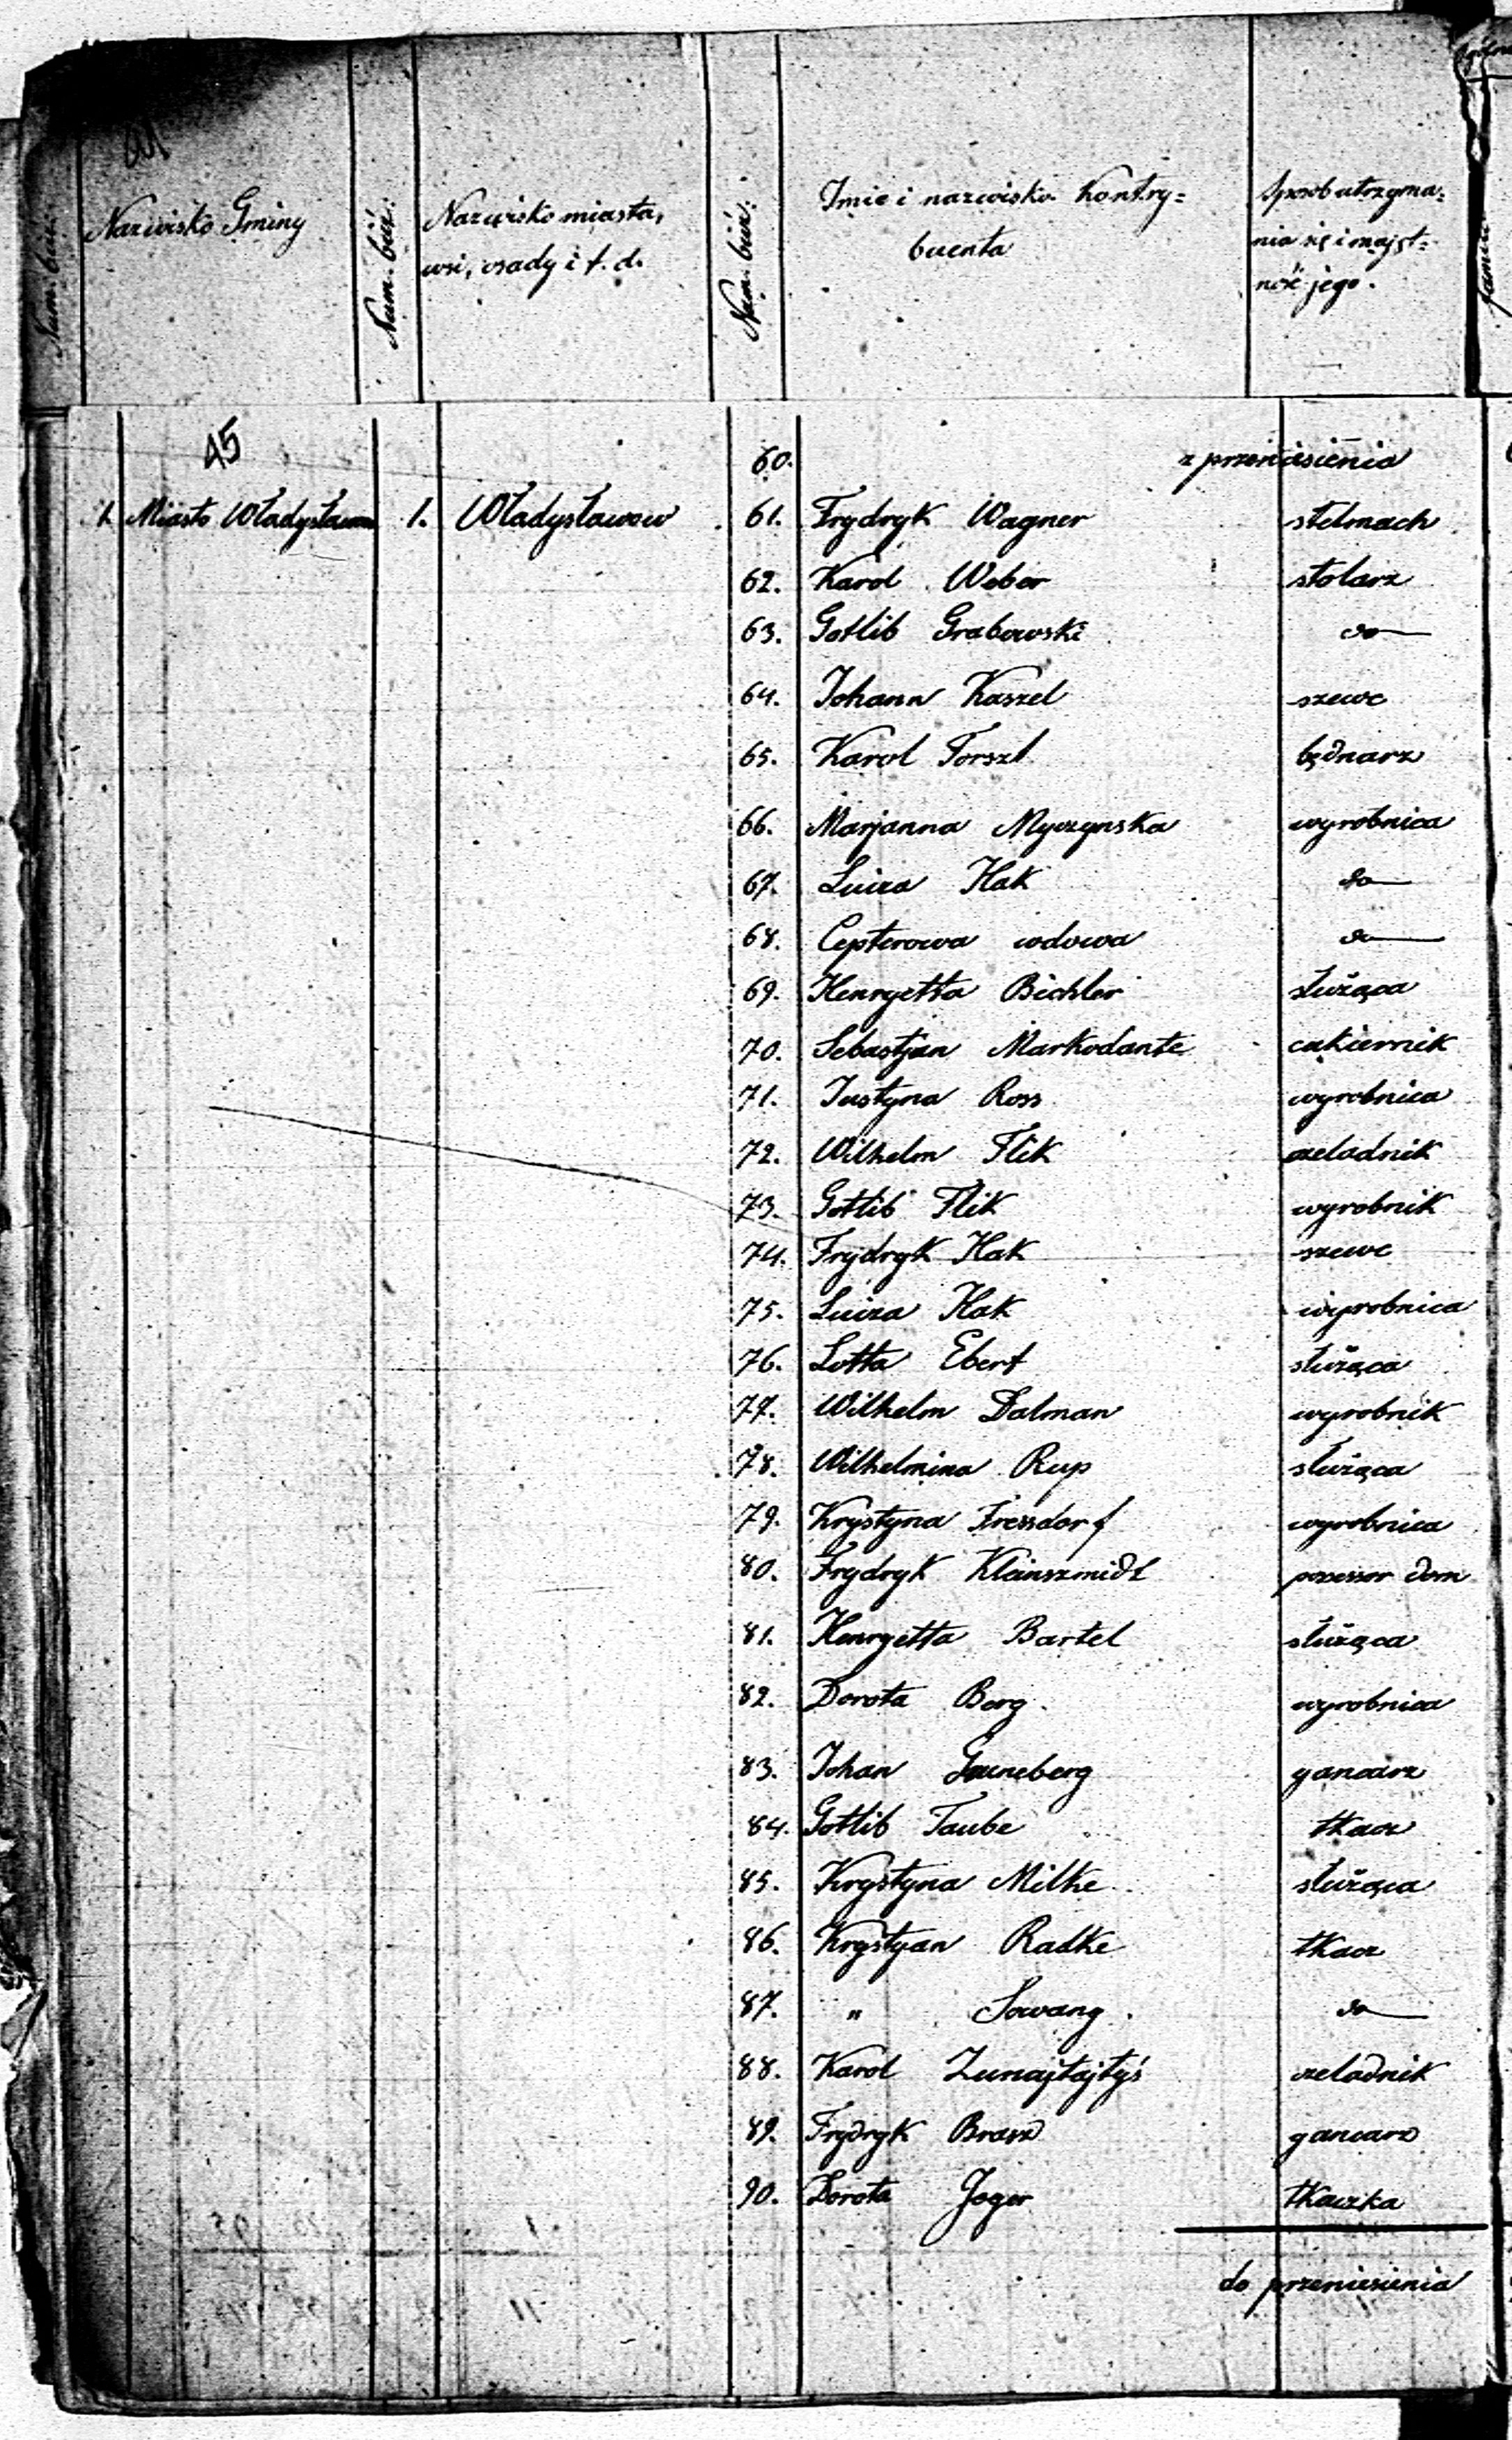 Num. bież.
Nazwisko Gminy
Num. bież.
Nazwisko miasta,
wsi, osady i t. d.
Num. bież.
Imie i nazwisko kontry=
buenta
Sposób utrzyma=
nia się i majęt=
ność jego.
45
60. z przeniesienia
1. Miasto Władysławow 1. Władysławow 61. Frydryk Wagner stelmach
62. Karol Weber stolarz
63. Gotlib Grabowski do
64. Johann Kaszel szewc
65. Karol Forszt będnarz
66. Marjanna Myczynska wyrobnica
67. Luiza Hak do
68. Cepterowa wdowa do
69. Henryetta Bichler służąca
70. Sebastjan Markodante cukiernik
71. Justyna Ross wyrobnica
72. Wilhelm Flik czeladnik
73. Gotlib Flik wyrobnik
74. Frydryk Hak szewc
75. Luiza Hak wyrobnica
76. Lotta Ebert służąca
77. Wilhelm Dalman wyrobnik
78. Wilhelmina Rup służąca
79. Krystyna Frezsdorf wyrobnica
80. Frydryk Kleinszmidt possessor dom
81. Henryetta Bartel służąca
82. Dorota Berg wyrobnica
83. Johan garncarz
84. Gotlib Taube tkacz
85. Krystyna Milke służąca
86. Krystyan Radke tkacz
87. " Sowang do
88. Karol Zunajtajtyś czeladnik
89. Frydryk Brasz gancarz
90. Dorota Jeger tkaczka
do przeniesienia